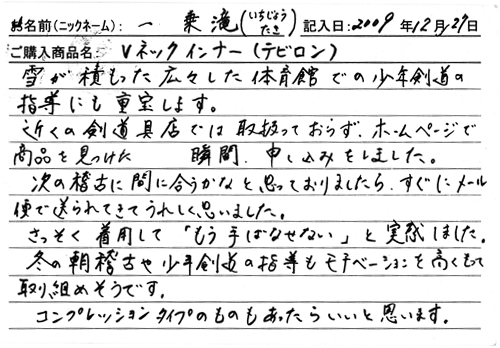 お名前(ニックネーム): 一乗滝(いちじょうたき) 記入日:2009年12月27日
ご購入商品名: Vネックインナー(テビロン)
雪が積もった広々した体育館での少年剣道の
指導にも重宝します。
近くの剣道具店では取扱っておらず、ホームページで
商品を見つけた 瞬間、申し込みをしました。
次の稽古に間に合うかなと思っておりましたら、すぐにメール
便で送られてきてうれしく思いました。
さっそく着用して「もう手ばなせない」と実感しました。
冬の朝稽古や少年剣道の指導もモチベーションを高くもって
取り組めそうです。
コンプレッションタイプのものもあったらいいと思います。